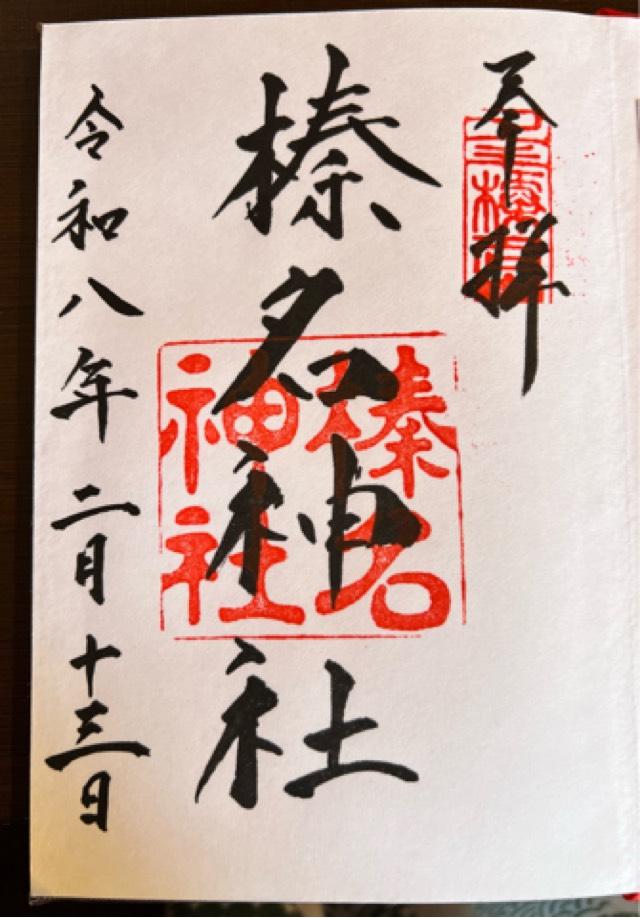 奉拝
榛名神社
令和八年二月十三日
榛名
神社